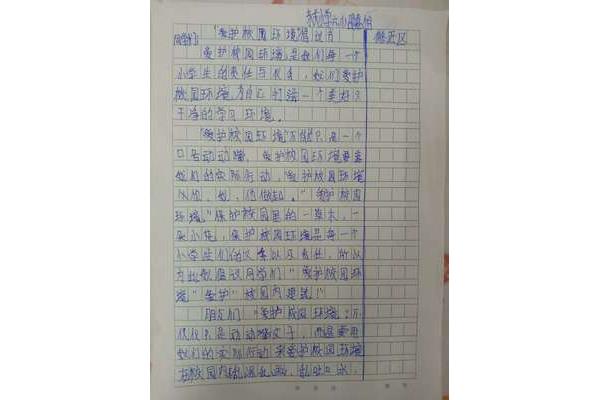 "爱护校园环境"倡议书 修改区
同学们：
爱护校园环境是我们每一个
小学生的责任与义务，我们爱护
校园环境，为自己创造一个美好又
干净的学习环境。
"爱护校园环境"不仅只是一个
口号动动嘴，爱护校园环境要靠
我们的实际行动，"爱护校园环境
从你、我、他做起。""爱护校园
环境"保护校园里的一草木，一
朵小花，保护校园环境是每一个
小学生们的义务以及责任，所以
为此我倡议同学们"爱护校园环
境"爱护"校园内建筑！"
朋友们"爱护校园环境"不
仅仅只是动动嘴皮子，而是要用
我们的实际行动来爱护校园环境
在校园内乱涂乱画，乱吐口水，